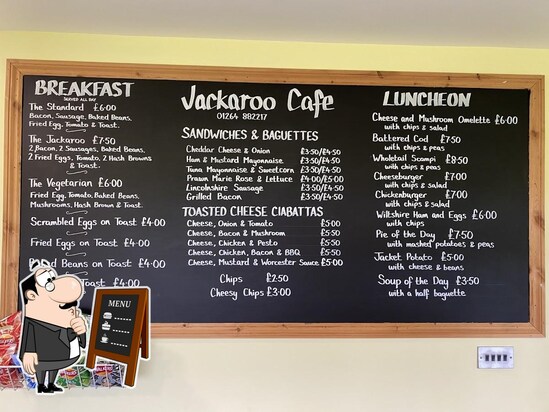 BREAKFAST
SERVED ALL DAY
The Standard £6.00
Bacon, Sausage, Baked Beans,
Fried Egg, Tomato & Toast.
The Jackaroo £7.50
2 Bacon, 2 Sausages, Baked Beans,
2 Fried Eggs, Tomato, 2 Hash Browns
& Toast.
The Vegetarian £6.00
Fried Egg, Tomato, Baked Beans,
Mushrooms, Hash Brown & Toast.
Scrambled Eggs on Toast £4.00
Fried Eggs on Toast £4.00
Beans on Toast £4.00
Toast £4.00
Jackaroo Cafe
01264 882217
SANDWICHES & BAGUETTES
Cheddar Cheese & Onion £3.50/£4.50
Ham & Mustard Mayonnaise £3.50/£4.50
Tuna Mayonnaise & Sweetcorn £3.50/£4.50
Prawn Marie Rose & Lettuce £4.00/£5.00
Lincolnshire Sausage £3.50/£4.50
Grilled Bacon £3.50/£4.50
TOASTED CHEESE CIABATTAS
Cheese, Onion & Tomato £5.00
Cheese, Bacon & Mushroom £5.50
Cheese, Chicken & Pesto £5.50
Cheese, Chicken, Bacon & BBQ £5.50
Cheese, Mustard & Worcester Sauce £5.00
Chips £2.50
Cheesy Chips £3.00
LUNCHEON
Cheese and Mushroom Omelette £6.00
with chips & salad
Battered Cod £7.50
with chips & peas
Wholetail Scampi £8.50
with chips & peas
Cheeseburger £7.00
with chips & salad
Chickenburger £7.00
with chips & salad
Wiltshire Ham and Eggs £6.00
with chips
Pie of the Day £7.50
with mashed potatoes & peas
Jacket Potato £5.00
with cheese & beans
Soup of the Day £3.50
with a half baguette
MENU